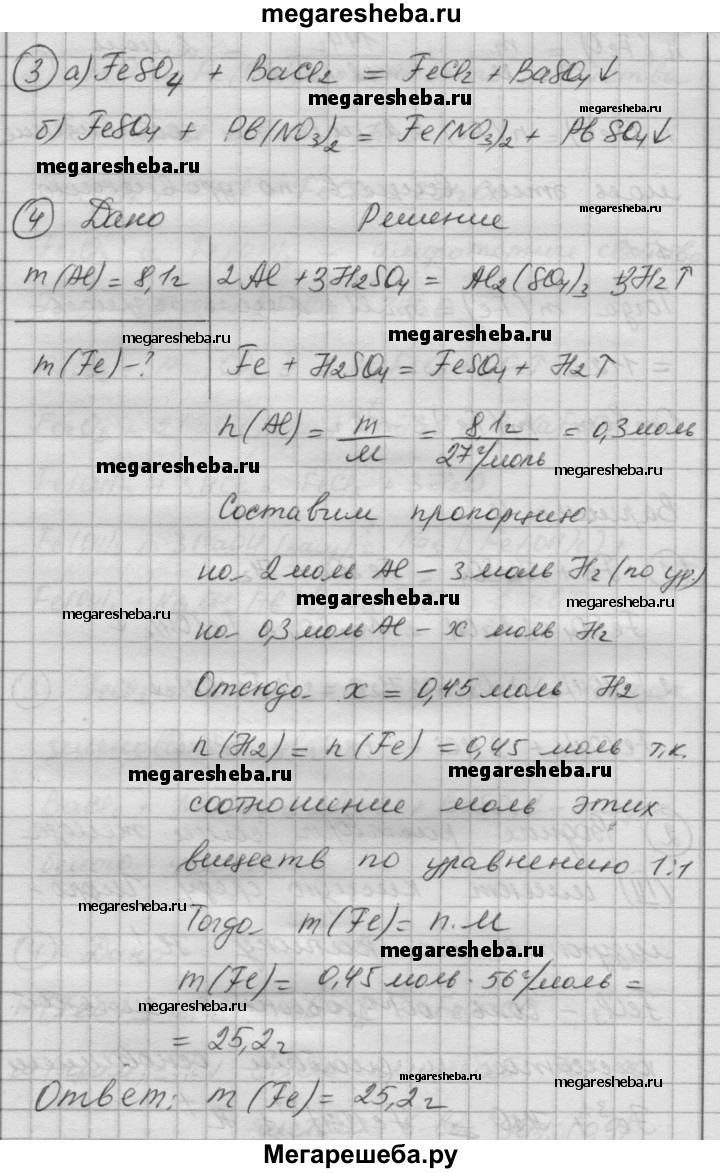 megaresheba.ru
③ а) FeSO₄ + BaCl₂ = FeCl₂ + BaSO₄↓
megaresheba.ru megaresheba.ru
б) FeSO₄ + Pb(NO₃)₂ = Fe(NO₃)₂ + PbSO₄↓
megaresheba.ru
④ Дано Решение megaresheba.ru
m(Al) = 8,1г 2Al + 3H₂SO₄ = Al₂(SO₄)₃ + 3H₂↑
megaresheba.ru megaresheba.ru
m(Fe) - ? Fe + H₂SO₄ = FeSO₄ + H₂↑
n(Al) = m/M = 8,1г/27г/моль = 0,3 моль
megaresheba.ru megaresheba.ru
Составим пропорцию
на 2 моль Al – 3 моль H₂ (по ур.)
megaresheba.ru megaresheba.ru megaresheba.ru
на 0,3 моль Al – x моль H₂
Отсюда x = 0,45 моль H₂
n(H₂) = n(Fe) = 0,45 моль т.к.
megaresheba.ru megaresheba.ru
соотношение моль этих
веществ по уравнению 1:1
megaresheba.ru
Тогда m(Fe) = n·M
megaresheba.ru
m(Fe) = 0,45 моль · 56г/моль =
megaresheba.ru
= 25,2г
megaresheba.ru megaresheba.ru
Ответ: m(Fe) = 25,2г
Мегарешеба.ру